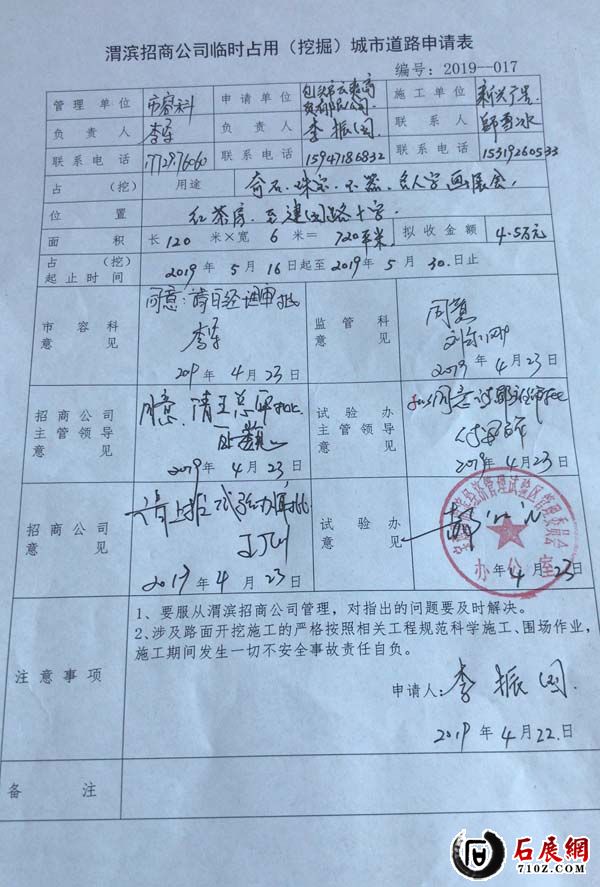 渭滨招商公司临时占用（挖掘）城市道路申请表
编号：2019—017
管理单位 市容科 申请单位 施工单位
负责人 李军 负责人 李振国 联系人
联系电话 联系电话 15947186832 联系电话 15319260533
占（挖）用途 奇石、珠宝、木器、名人字画展会，
位置 红茶房至建国路十字，
面积 长120米×宽6米＝720平米 拟收金额 4.5万元
占（挖）起止时间 2019年5月16日起至2019年5月30日止
市容科意见 同意：请 经理审批 李军 2019年4月23日
监管科意见 同意 2019年4月23日
招商公司主管领导意见 同意、请王总审批 2019年4月23日
试验办主管领导意见 同意 2019年4月23日
招商公司意见 请上报试验办审批 2019年4月23日
试验办意见 年4月23日
经济管理试验区管理委员会
办公室
注意事项
1、要服从渭滨招商公司管理，对指出的问题要及时解决。
2、涉及路面开挖施工的严格按照相关工程规范科学施工、围场作业，
施工期间发生一切不安全事故责任自负。
申请人：李振国
2019年4月22日
备注
石展網
71OZ.COM